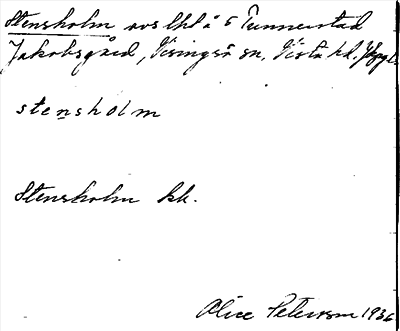 Stensholm avs lhl å 5 Tunnerstad
Jakobsgård, Visingsö sn, Vista hd. Jkpgl.
stensholm
Stensholm kk.
Alice Peterson 1936